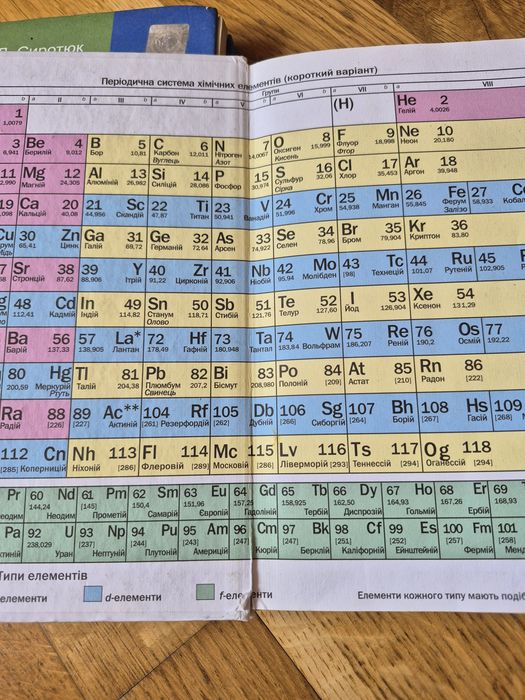 П. Сиротюк
Періодична система хімічних елементів (короткий варіант)
Групи
a II b a III b a IV b a V b a VI b a VII b a VIII
1 (H) He 2
1,0079 Гелій 4,0026
3 Be 4 5 B 6 C 7 N 8 O 9 F 10 Ne
6,941 Берилій 9,012 Бор 10,81 Карбон 12,011 Нітроген 14,0067 Оксиген 15,999 Флуор 18,998 Неон 20,180
Вуглець Азот Кисень Фтор
11 Mg 12 Al 13 Si 14 P 15 S 16 Cl 17 Ar 18
2,990 Магній 24,305 Алюміній 26,982 Силіцій 28,086 Фосфор 30,974 Сульфур 32,06 Хлор 35,453 Аргон 39,948
Сірка
19 Ca 20 21 Sc 22 Ti 23 V 24 Cr 25 Mn 26 Fe 27
9,098 Кальцій 40,08 44,956 Скандій 47,87 Титан 50,941 Ванадій 51,996 Хром 54,938 Манган 55,845 Ферум 58,933 Кобал
Залізо
Cu 30 Zn Ga 31 Ge 32 As 33 Se 34 Br 35 Kr 36
65,41 Цинк Галій 69,72 Германій 72,64 Арсен 74,922 Селен 78,96 Бром 79,904 Криптон 83,80
Sr 38 39 Y 40 Zr 41 Nb 42 Mo 43 Tc 44 Ru 45
Стронцій 87,62 88,906 Ітрій 91,22 Цирконій 92,906 Ніобій 95,94 Молібден [98] Технецій 101,07 Рутеній 102,905
48 Cd In 49 Sn 50 Sb 51 Te 52 I 53 Xe 54
112,41 Кадмій Індій 114,82 Станум 118,71 Стибій 121,76 Телур 127,60 Йод 126,904 Ксенон 131,29
Олово
Ba 56 57 La* 72 Hf 73 Ta 74 W 75 Re 76 Os 77
Барій 137,33 138,905 Лантан 178,49 Гафній 180,948 Тантал 183,84 Вольфрам 186,207 Реній 190,2 Осмій 192,22
80 Hg Tl 81 Pb 82 Bi 83 Po 84 At 85 Rn 86
200,59 Меркурій Талій 204,38 Плюмбум 207,2 Бісмут 208,980 Полоній [209] Астат [210] Радон [222]
Ртуть Свинець
Ra 88 89 Ac** 104 Rf 105 Db 106 Sg 107 Bh 108 Hs 109
Радій [226] [227] Актиній [261] Резерфордій [262] Дубній [266] Сиборгій [264] Борій [267] Гасій [268]
112 Cn Nh 113 Fl 114 Mc 115 Lv 116 Ts 117 Og 118
[285] Коперницій Ніхоній [286] Флеровій [289] Московій [286] Ліверморій [293] Теннессій [294] Оганессій [294]
Pr 60 Nd 61 Pm 62 Sm 63 Eu 64 Gd 65 Tb 66 Dy 67 Ho 68 Er 69
144,24 Неодим [145] Прометій 150,4 Самарій 151,96 Європій 157,25 Гадоліній 158,925 Тербій 162,50 Диспрозій 164,93 Гольмій 167,26 Ербій 168,93
Pa 92 U 93 Np 94 Pu 95 Am 96 Cm 97 Bk 98 Cf 99 Es 100 Fm 101
238,029 Уран [237] Нептуній [244] Плутоній [243] Америцій [247] Кюрій [247] Берклій [251] Каліфорній [252] Ейнштейній [257] Фермій [258] Менд
Типи елементів
елементи d-елементи f-елементи Елементи кожного типу мають подіб